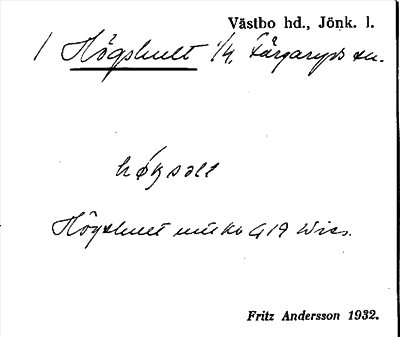 Västbo hd., Jönk. l.
/ Högshult 1/4, Färgaryds sn.
høgsolt
Högshult mtl Kb 419 Wies.
Fritz Andersson 1932.